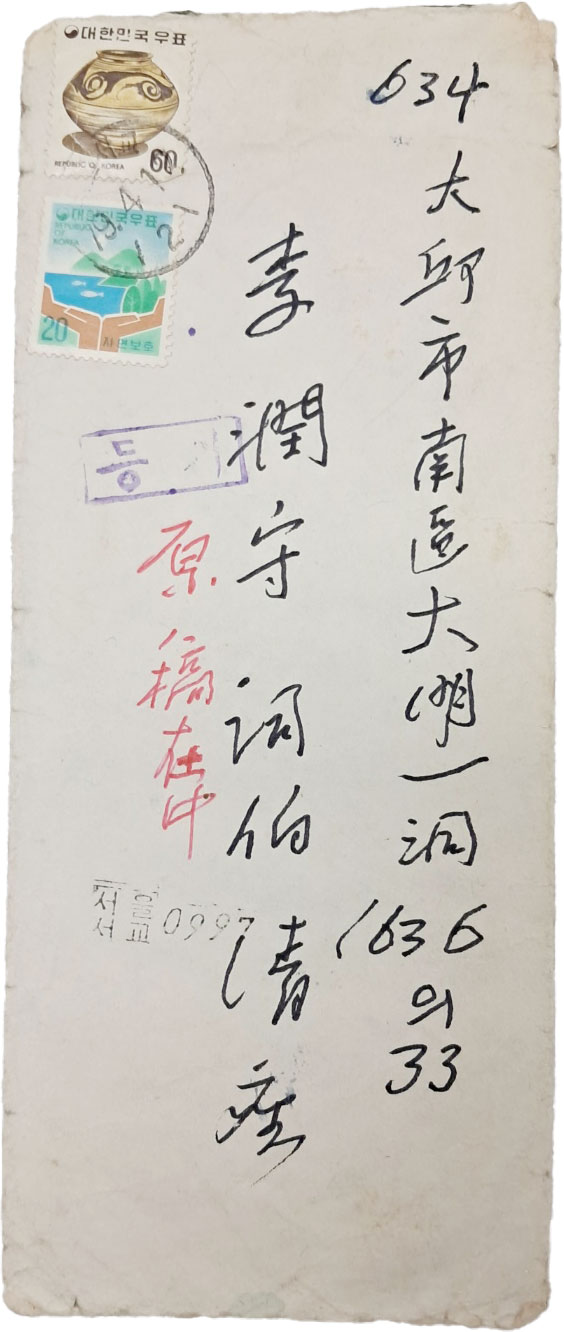 634
大邱市南區大明一洞
1636
의
33
李潤守 詞伯 淸座
原稿在中
대한민국우표
REPUBLIC OF KOREA
60
대한민국우표
REPUBLIC
OF
KOREA
20
자연보호
서교
79.4.1
121
등기
서울
서교
0997